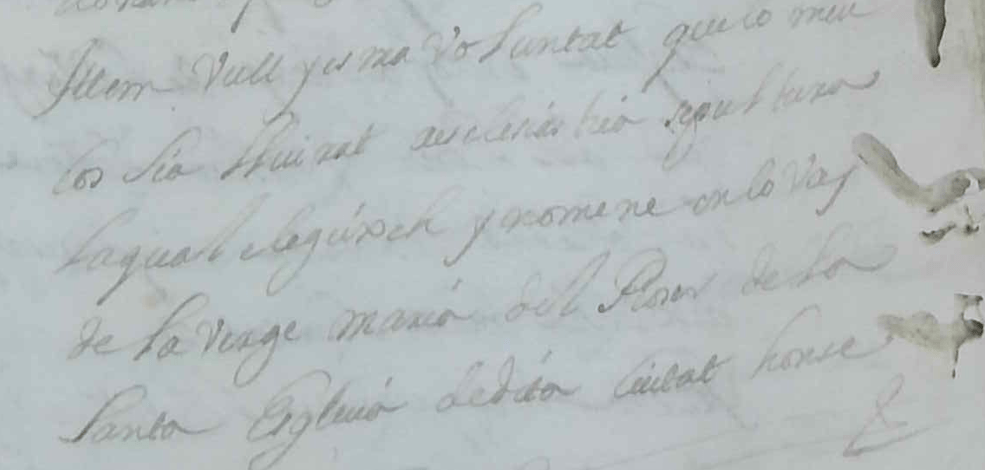 Ittem Vull y es ma Voluntat que lo meu
Cos sia lliurat a ecclesiastica sepultura
laqual elegesch y nomene en lo Vas
de la Verge maria del Roser de la
Santa Esglesia de dita Ciutat